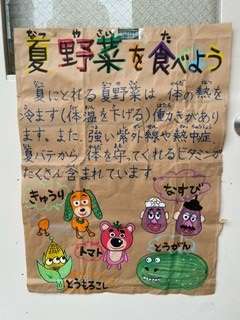 夏野菜を食べよう
夏にとれる夏野菜は、体の熱を
冷ます(体温を下げる)働きがあり
ます。また、強い紫外線や熱中症、
夏バテから、体を守ってくれるビタミンが
たくさん含まれています。
きゅうり
なすび
トマト
とうがん
とうもろこし